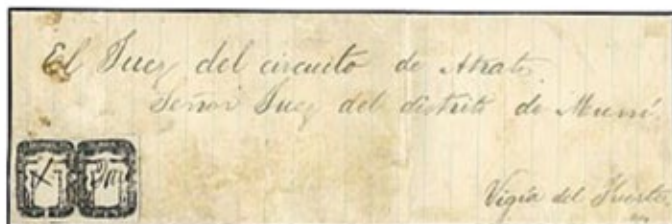 El Juez del circuito de Atrato.
Señor Juez del distrito de Murrí.
Vigía del Fuerte